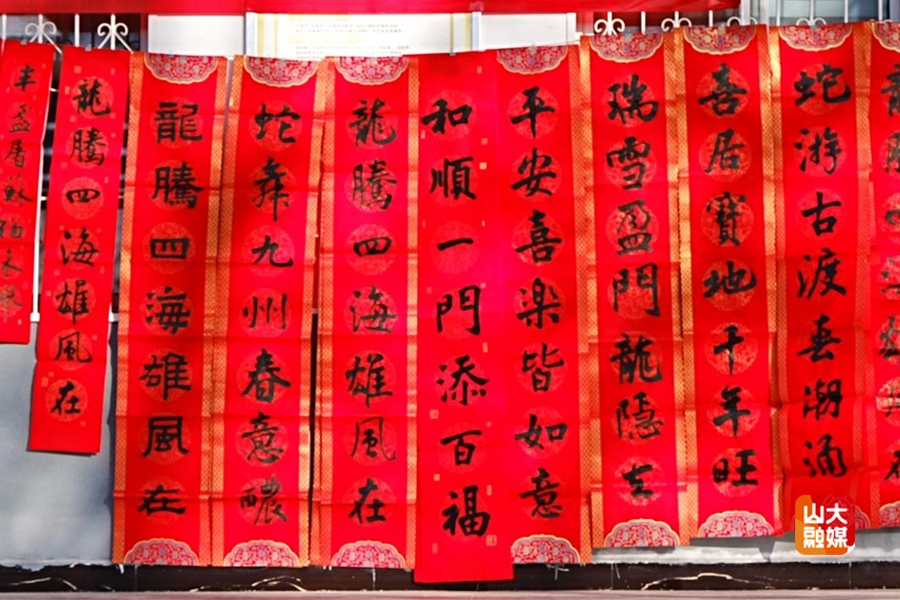 半盏屠蘇猶未舉
龍騰四海雄風在
龍騰四海雄風在
蛇舞九州春意醲
龍騰四海雄風在
和順一門添百福
平安喜楽皆如意
瑞雪盈門龍隱去
喜居寶地千年旺
蛇游古渡春潮涌
山大
融媒